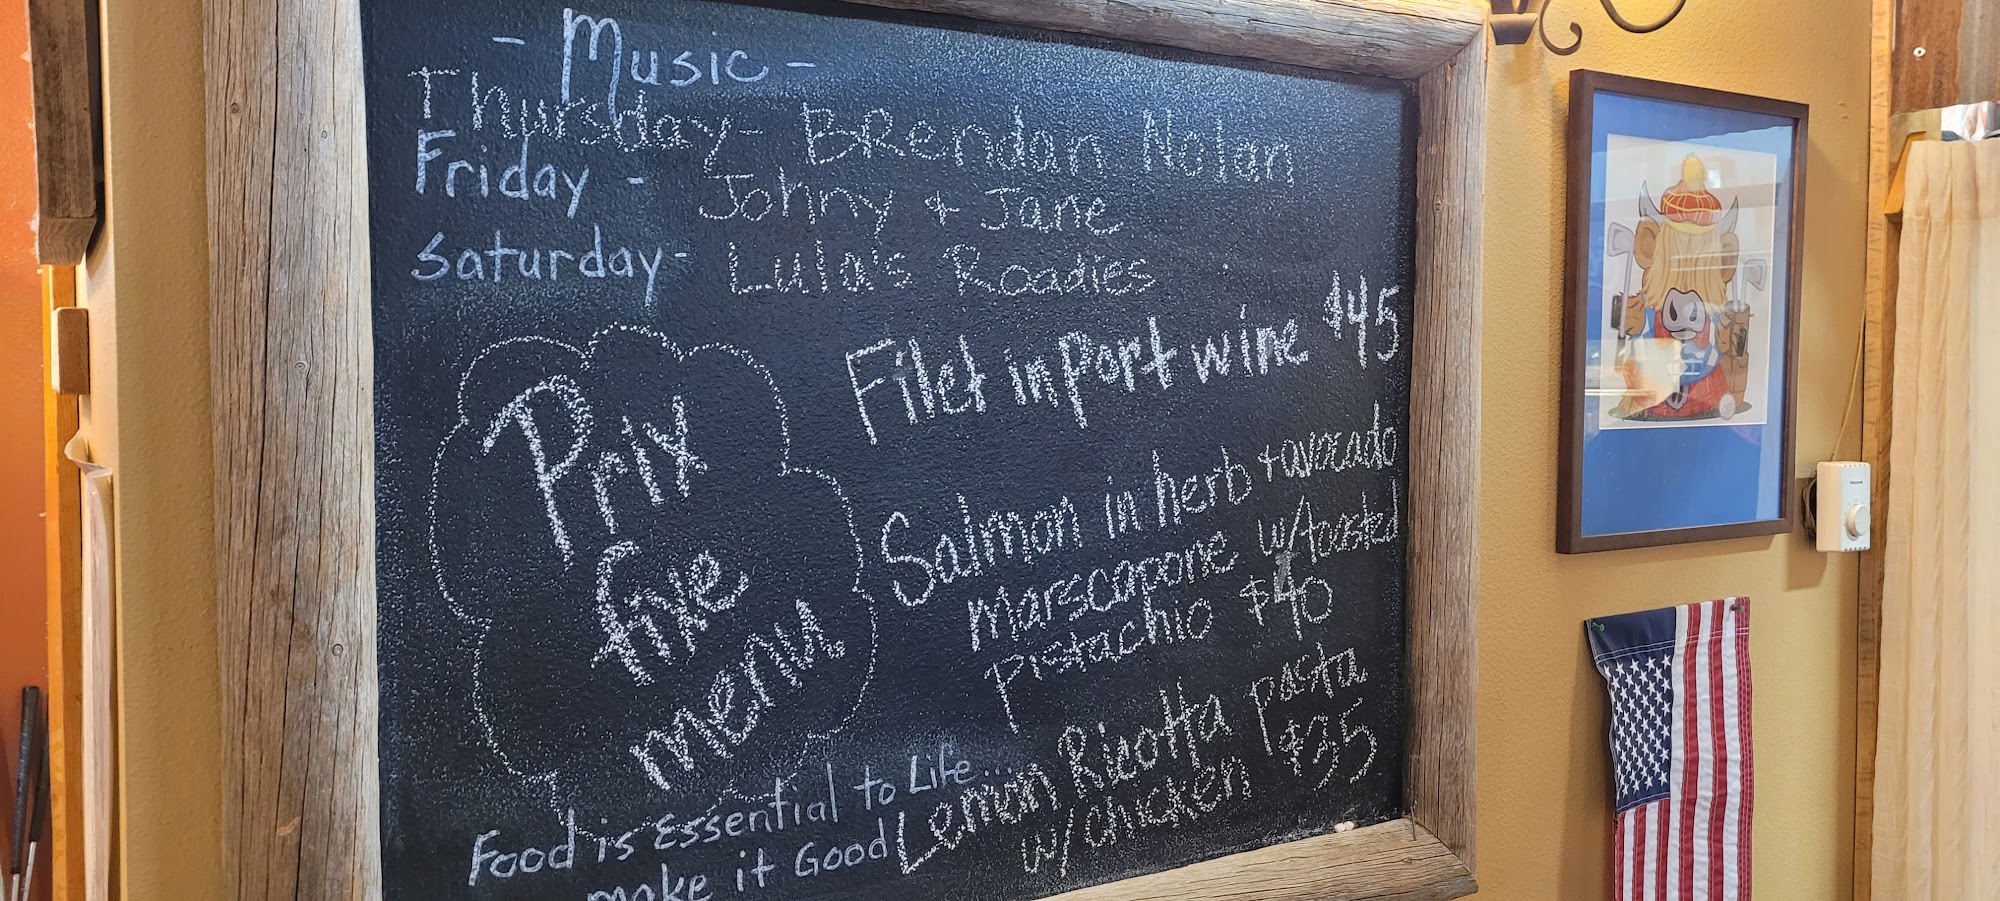 - Music -
Thursday - Brendan Nolan
Friday - Johny + Jane
Saturday - Lula's Roadies
Prix
fixe
menu
Filet in Port wine $45
Salmon in herb + avocado
marscapone w/toasted
pistachio $40
Lemon Ricotta pasta
w/chicken $35
Food is Essential to Life...
make it Good